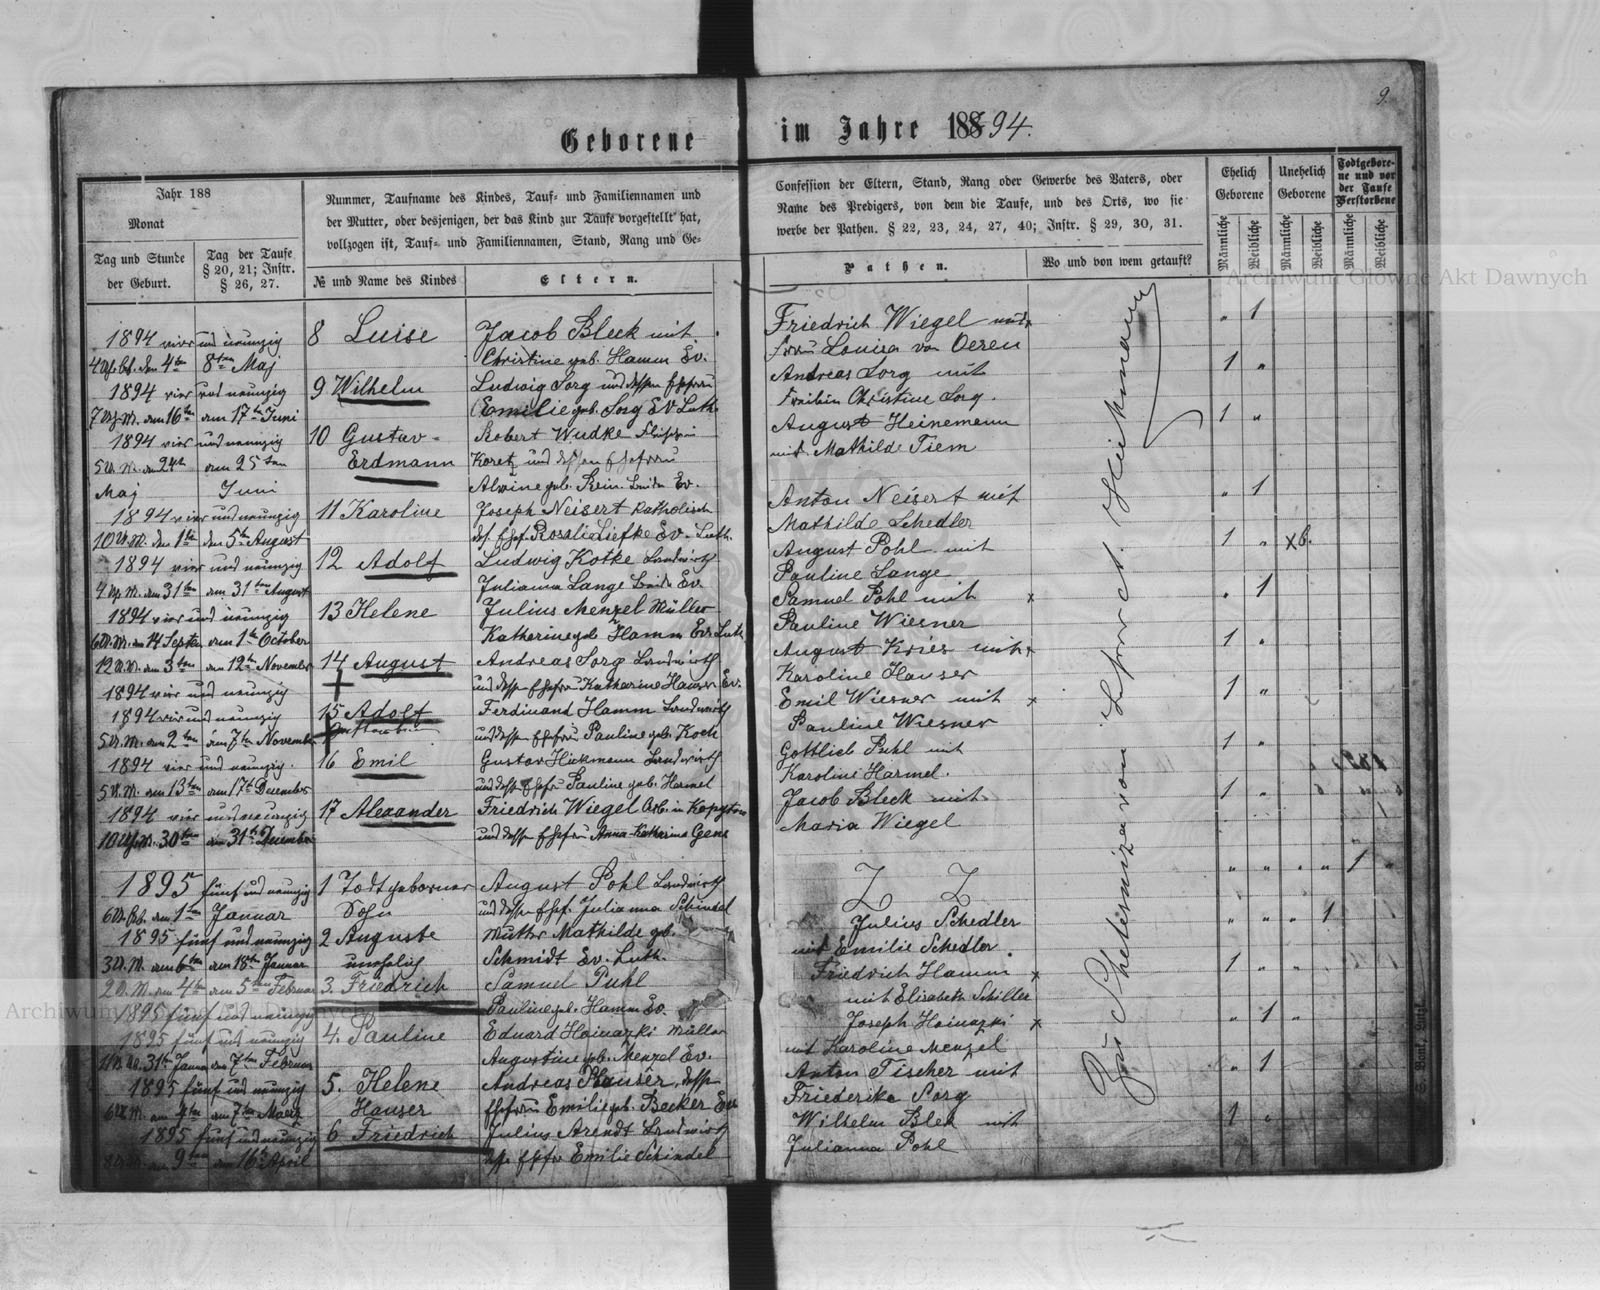 9.
Geborene im Jahre 18894.
Jahr 188
Monat
Tag und Stunde
der Geburt.
Tag der Taufe
§ 20, 21; Instr.
§ 26, 27.
Nummer, Taufname des Kindes, Tauf- und Familiennamen und
der Mutter, oder desjenigen, der das Kind zur Taufe vorgestellt hat,
vollzogen ist, Tauf- und Familiennamen, Stand, Rang und Ge-
№ und Name des Kindes
Eltern.
Confession der Eltern, Stand, Rang oder Gewerbe des Vaters, oder
Name des Predigers, von dem die Taufe, und des Orts, wo sie
werbe der Pathen. § 22, 23, 24, 27, 40; Instr. § 29, 30, 31.
Pathen.
Wo und von wem getauft?
Ehelich
Geborene
Männliche
Weibliche
Unehelich
Geborene
Männliche
Weibliche
Todtgebore-
ne und vor
der Taufe
Verstorbene
Männliche
Weibliche
1894 vier und neunzig 8 Luise Jacob Bleck mit Friedrich Wiegel und " 1
den 4ten 8ten Maj Christine geb. Hamm Ev. Frau Louisa von Oeren
1894 vier und neunzig 9 Wilhelm Ludwig Sorg und dessen Ehefrau Andreas Sorg mit 1 "
am 16ten am 17ten Juni Emilie geb. Sorg Ev Luth. Christine Sorg.
1894 vier und neunzig 10 Gustav- Robert Wudke August Heinemann 1 "
am 24ten am 25ten Erdmann Koretz und dessen Ehefrau mit Mathilde Tiem
Maj Juni Alwine geb. Rein. Beide Ev.
1894 vier und neunzig 11 Karoline Joseph Neisert Katholisch Anton Neisert mit " 1
den 1ten den 5ten August Rosalie Liefke Ev. Luth. Mathilde Schedler
1894 vier und neunzig 12 Adolf Ludwig Kotke Landwirth August Pohl mit 1 " Xb.
am 31ten am 31ten August Julianna Lange Beide Ev. Pauline Lange
1894 vier und neunzig 13 Helene Julius Menzel Müller Samuel Pohl mit x " 1
am 14 Septen am 1ten October Katherine geb Hamm Ev. Luth Pauline Wiesner
am 3ten am 12ten November 14 August Andreas Sorg Landwirth August Kries mit x 1 "
1894 vier und neunzig und dessen Ehefrau Katharine Hauser Ev. Karoline Hauser
1894 vier und neunzig 15 Adolf Ferdinand Hamm Landwirth Emil Wiesner mit x 1 "
am 2ten am 7ten November und dessen Ehefrau Pauline geb. Koch Pauline Wiesner
1894 vier und neunzig. 16 Emil Gustav Hickmann Landwirth Gottlieb Puhl mit 1 "
am 13ten am 17ten December und dess. Ehefr Pauline geb. Harmel Karoline Harmel.
1894 vier und neunzig 17 Alexander Friedrich Wiegel Arb. in Jacob Bleck mit 1 "
30ten am 31ten December und dessen Ehefrau Anna-Katharina Gens Maria Wiegel
1895 fünf und neunzig 1 Todtgeborner August Pohl Landwirth " " " " 1 "
am 1ten Januar Sohn und dessen Ehef. Julianna Schindel
1895 fünf und neunzig 2 Auguste Mutter Mathilde geb. Julius Schedler " " " 1
am 6ten am 18ten Januar unehelich Schmidt Ev. Luth. mit Emilie Schedler
am 4ten am 5ten Februar 3. Friedrich Samuel Puhl Friedrich Hamm x 1 " "
1895 fünf und neunzig Pauline geb. Hamm Ev. mit Elisabeth Schiller
1895 fünf und neunzig 4. Pauline Eduard Hoinazki Müller Joseph Hoinazki x " 1 "
31ten Januar den 7ten Februar Augustine geb. Menzel Ev. mit Karoline Menzel
1895 fünf und neunzig 5. Helene Andreas Hauser, dessen Anton Fischer mit " 1
am 4ten am 7ten Maerz Hauser Ehefrau Emilie geb. Becker Ev. Friederike Sorg
1895 fünf und neunzig 6 Friedrich Julius Arendt Landwirth Wilhelm Blek mit 1 "
am 9ten am 16ten April Ehefr Emilie Schindel Julianna Pohl
Archiwum Główne Akt Dawnych
Archiwum Główne Akt Dawnych